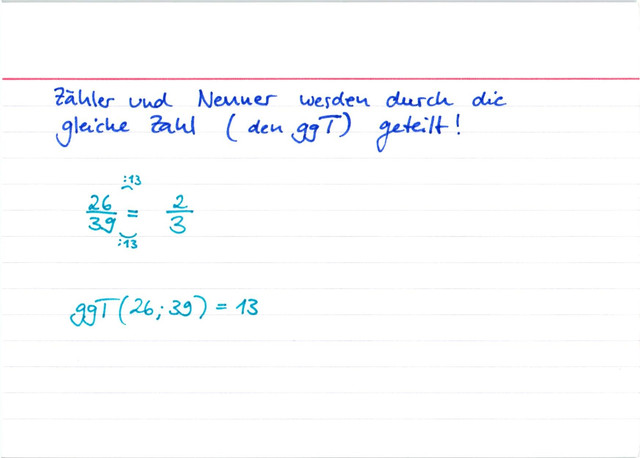 Zähler und Nenner werden durch die
gleiche Zahl (den ggT) geteilt!
:13
26/39 = 2/3
:13
ggT(26;39) = 13